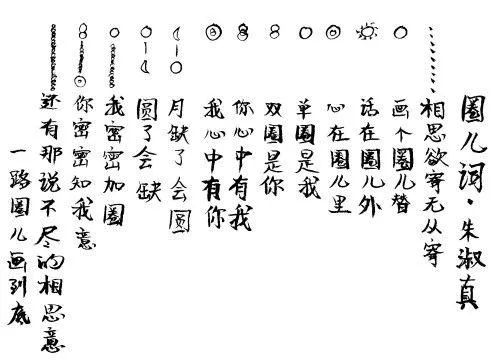 圈儿词·朱淑真
相思欲寄无从寄
画个圈儿替
话在圈儿外
心在圈儿里
单圈是我
双圈是你
你心中有我
我心中有你
月缺了会圆
圆了会缺
我密密加圈
你密密知我意
还有那说不尽的相思意
一路圈儿画到底